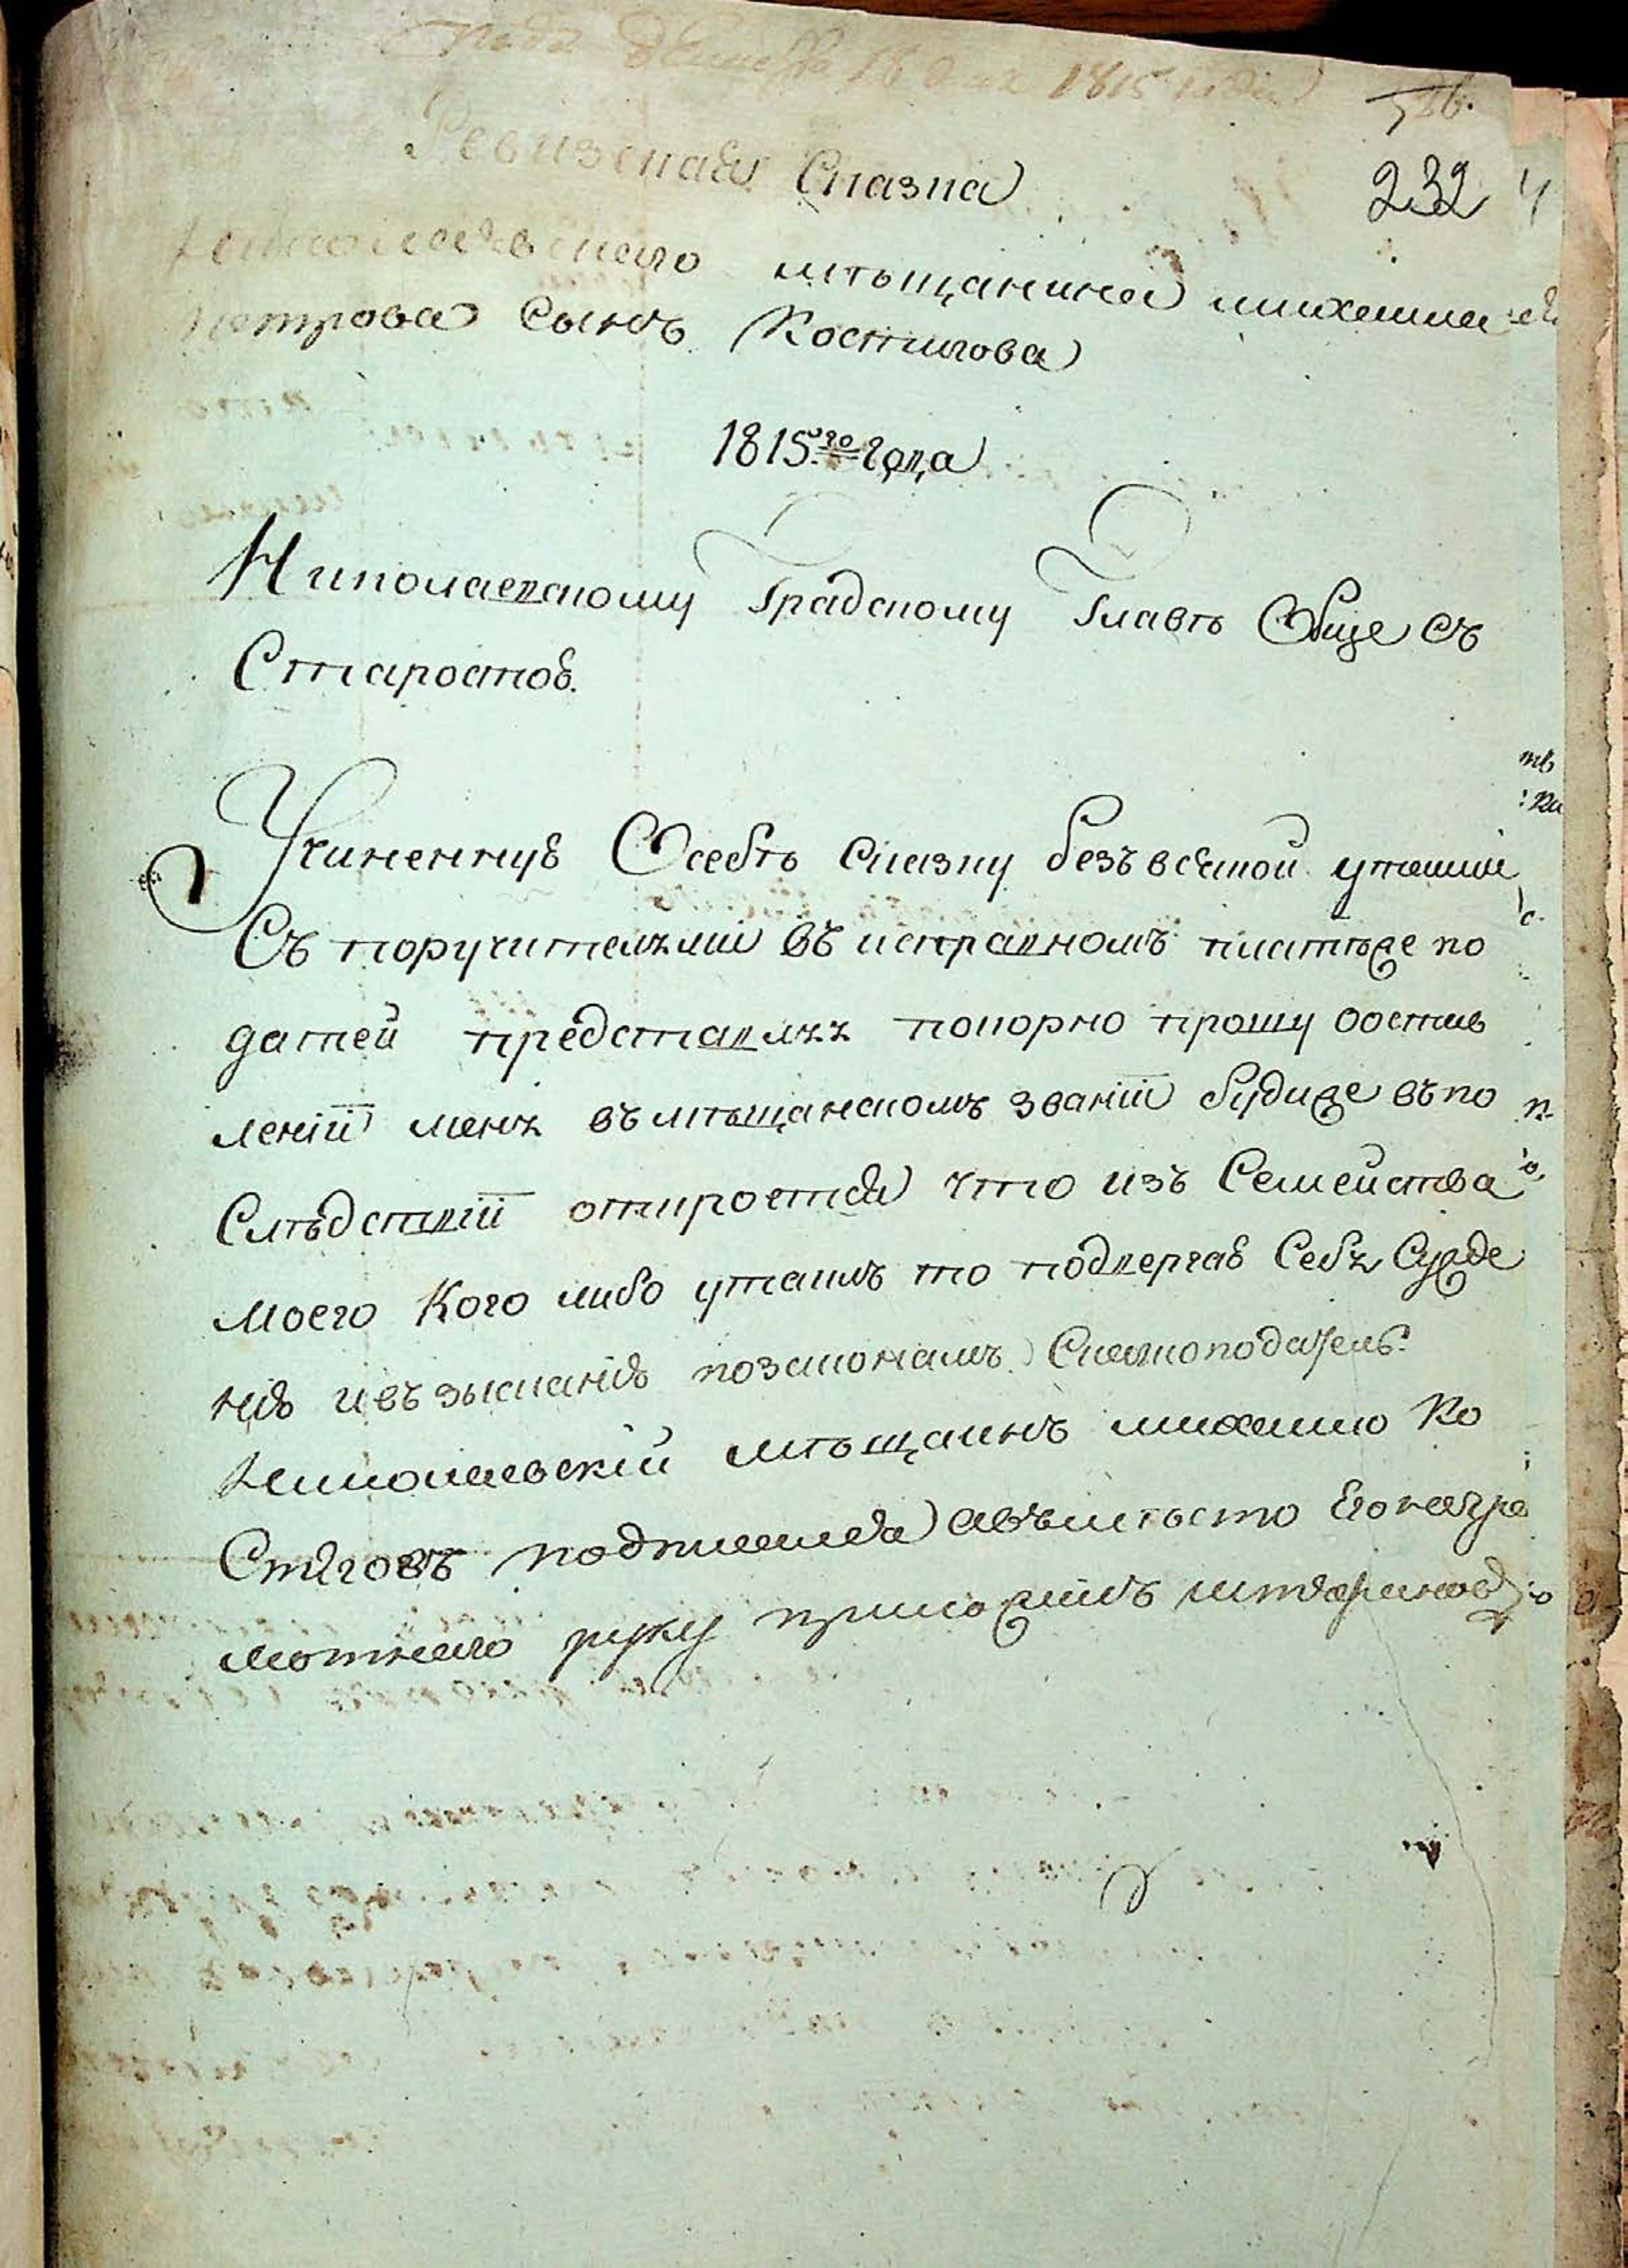 1815 года
232
Ревизская Сказка
Николаевского мѣщанина михаила
петрова сынъ Костигова
1815го года
Николаевскому Градскому Главѣ Обще съ
Старостою.
Учиненную Осебѣ сказку безъ всякой утайки
Съ поручительми въ исправномъ платѣже по
датей представляя покорно прошу оостав
леніи меня въ мѣщанскомъ званіи будиже въ по
Слѣдствіи откроется что изъ Семейства
моего Кого либо утаилъ то подвергаю Себя Сужде
нію и възысканію позаконамъ
Николаевскій мѣщанинъ михайло Ко
Стяговъ подписался авъмѣсто Его неагра
мотнаго руку приложилъ